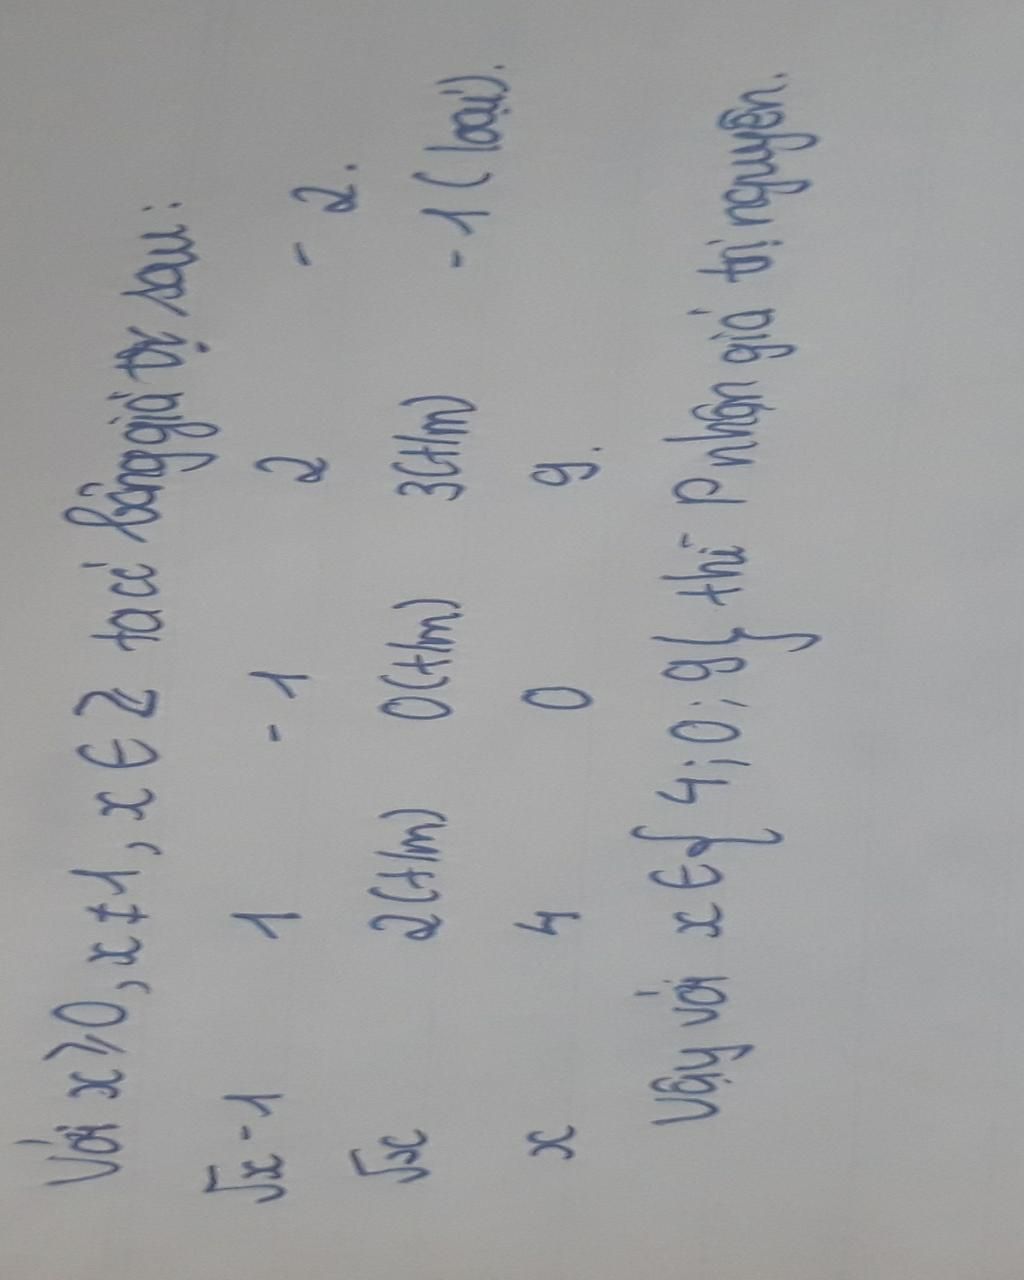 Với x ≥ 0, x ≠ 1, x ∈ Z ta có bảng giá trị sau:
√x - 1 1 - 1 2 - 2.
√x 2(t/m) 0(t/m) 3(t/m) - 1 (loại).
x 4 0 9.
Vậy với x ∈ { 4; 0; 9 } thì P nhận giá trị nguyên.